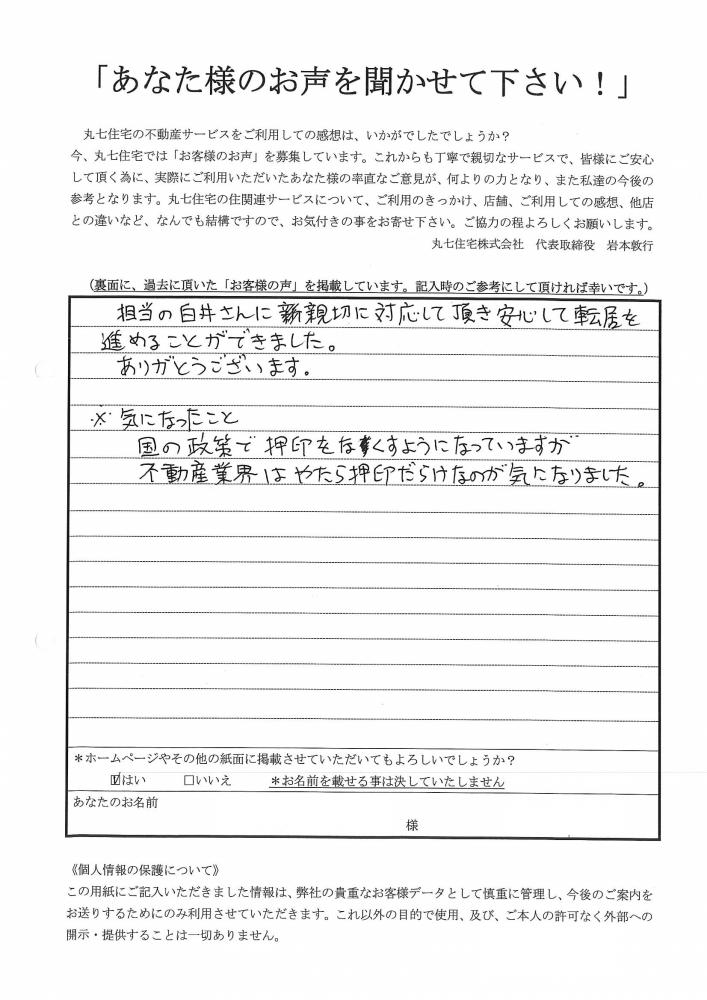 「あなた様のお声を聞かせて下さい！」
丸七住宅の不動産サービスをご利用しての感想は、いかがでしたでしょうか？
今、丸七住宅では「お客様のお声」を募集しています。これからも丁寧で親切なサービスで、皆様にご安心
して頂く為に、実際にご利用いただいたあなた様の率直なご意見が、何よりの力となり、また私達の今後の
参考となります。丸七住宅の住関連サービスについて、ご利用のきっかけ、店舗、ご利用しての感想、他店
との違いなど、なんでも結構ですので、お気付きの事をお寄せ下さい。ご協力の程よろしくお願いします。
丸七住宅株式会社　代表取締役　岩本敦行
（裏面に、過去に頂いた「お客様の声」を掲載しています。記入時のご参考にして頂ければ幸いです。）
担当の白井さんに親切に対応して頂き安心して転居を
進めることができました。
ありがとうございます。
※気になったこと
国の政策で押印をなくすようになっていますが
不動産業界はやたら押印だらけなのが気になりました。
＊ホームページやその他の紙面に掲載させていただいてもよろしいでしょうか？
☑はい　□いいえ　＊お名前を載せる事は決していたしません
あなたのお名前
様
《個人情報の保護について》
この用紙にご記入いただきました情報は、弊社の貴重なお客様データとして慎重に管理し、今後のご案内を
お送りするためにのみ利用させていただきます。これ以外の目的で使用、及び、ご本人の許可なく外部への
開示・提供することは一切ありません。